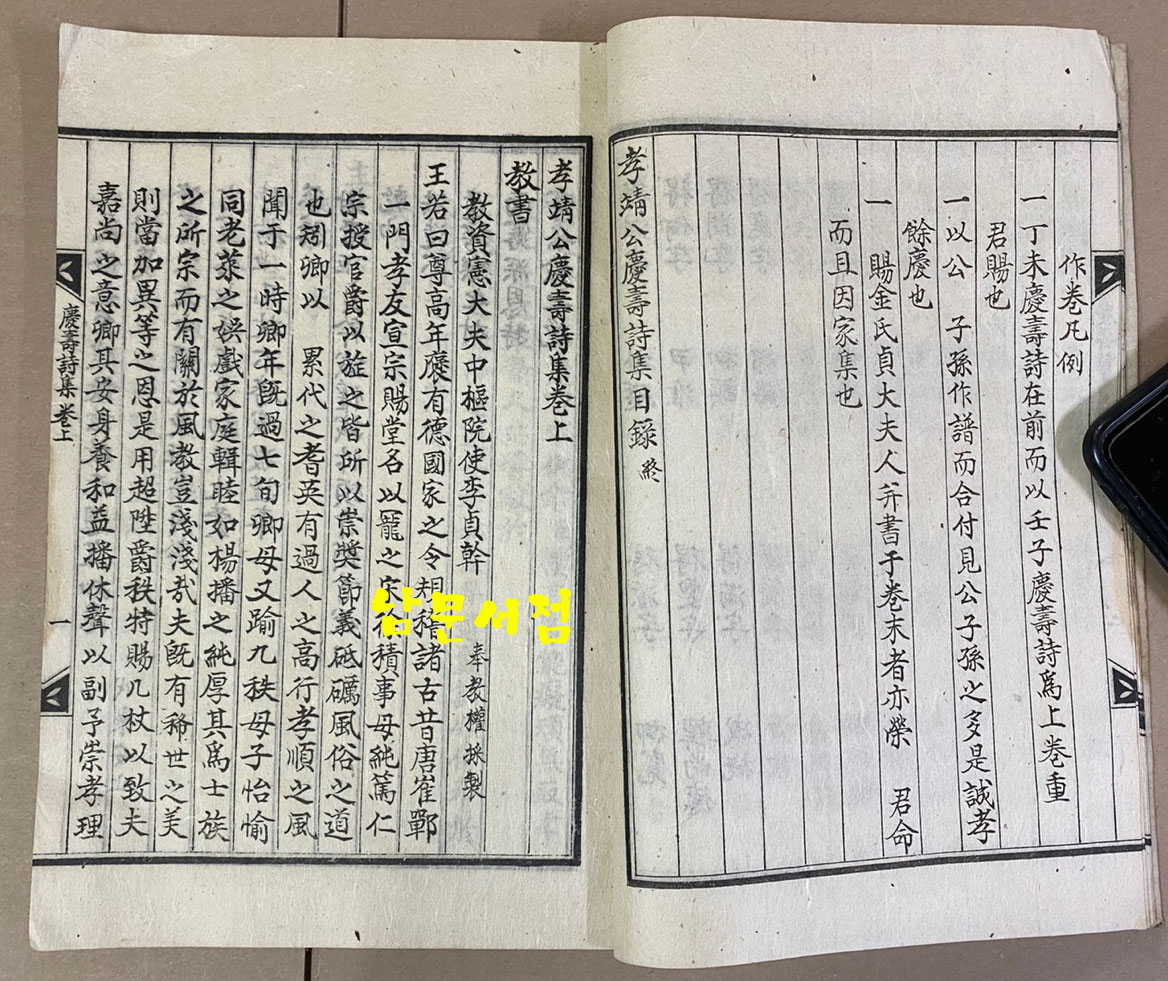 作卷凡例
一丁未慶壽詩在前而以壬子慶壽詩爲上卷重
君賜也
一以公 子孫作譜而合付見公子孫之多是誠孝
餘慶也
一 賜金氏貞大夫人并書于卷末者亦榮 君命
而且因家集也
孝靖公慶壽詩集目錄 終
孝靖公慶壽詩集卷上
教書
教資憲大夫中樞院使李貞幹 奉教權採製
王若曰尊高年褒有德國家之令規稽諸古昔唐崔鄲
一門孝友宣宗賜堂名以寵之宋徐積事母純篤仁
宗授官爵以旌之皆所以崇獎節義砥礪風俗之道
也矧卿以 累代之耆英有過人之高行孝順之風
聞于一時卿年旣過七旬卿母又踰九秩母子怡愉
同老萊之娛戲家庭輯睦如楊播之純厚其爲士族
之所宗而有關於風教豈淺淺哉夫旣有稀世之美
則當加異等之恩是用超陞爵秩特賜几杖以致夫
嘉尚之意卿其安身養和益播休聲以副予崇孝理
慶壽詩集 卷上
一
남문서점